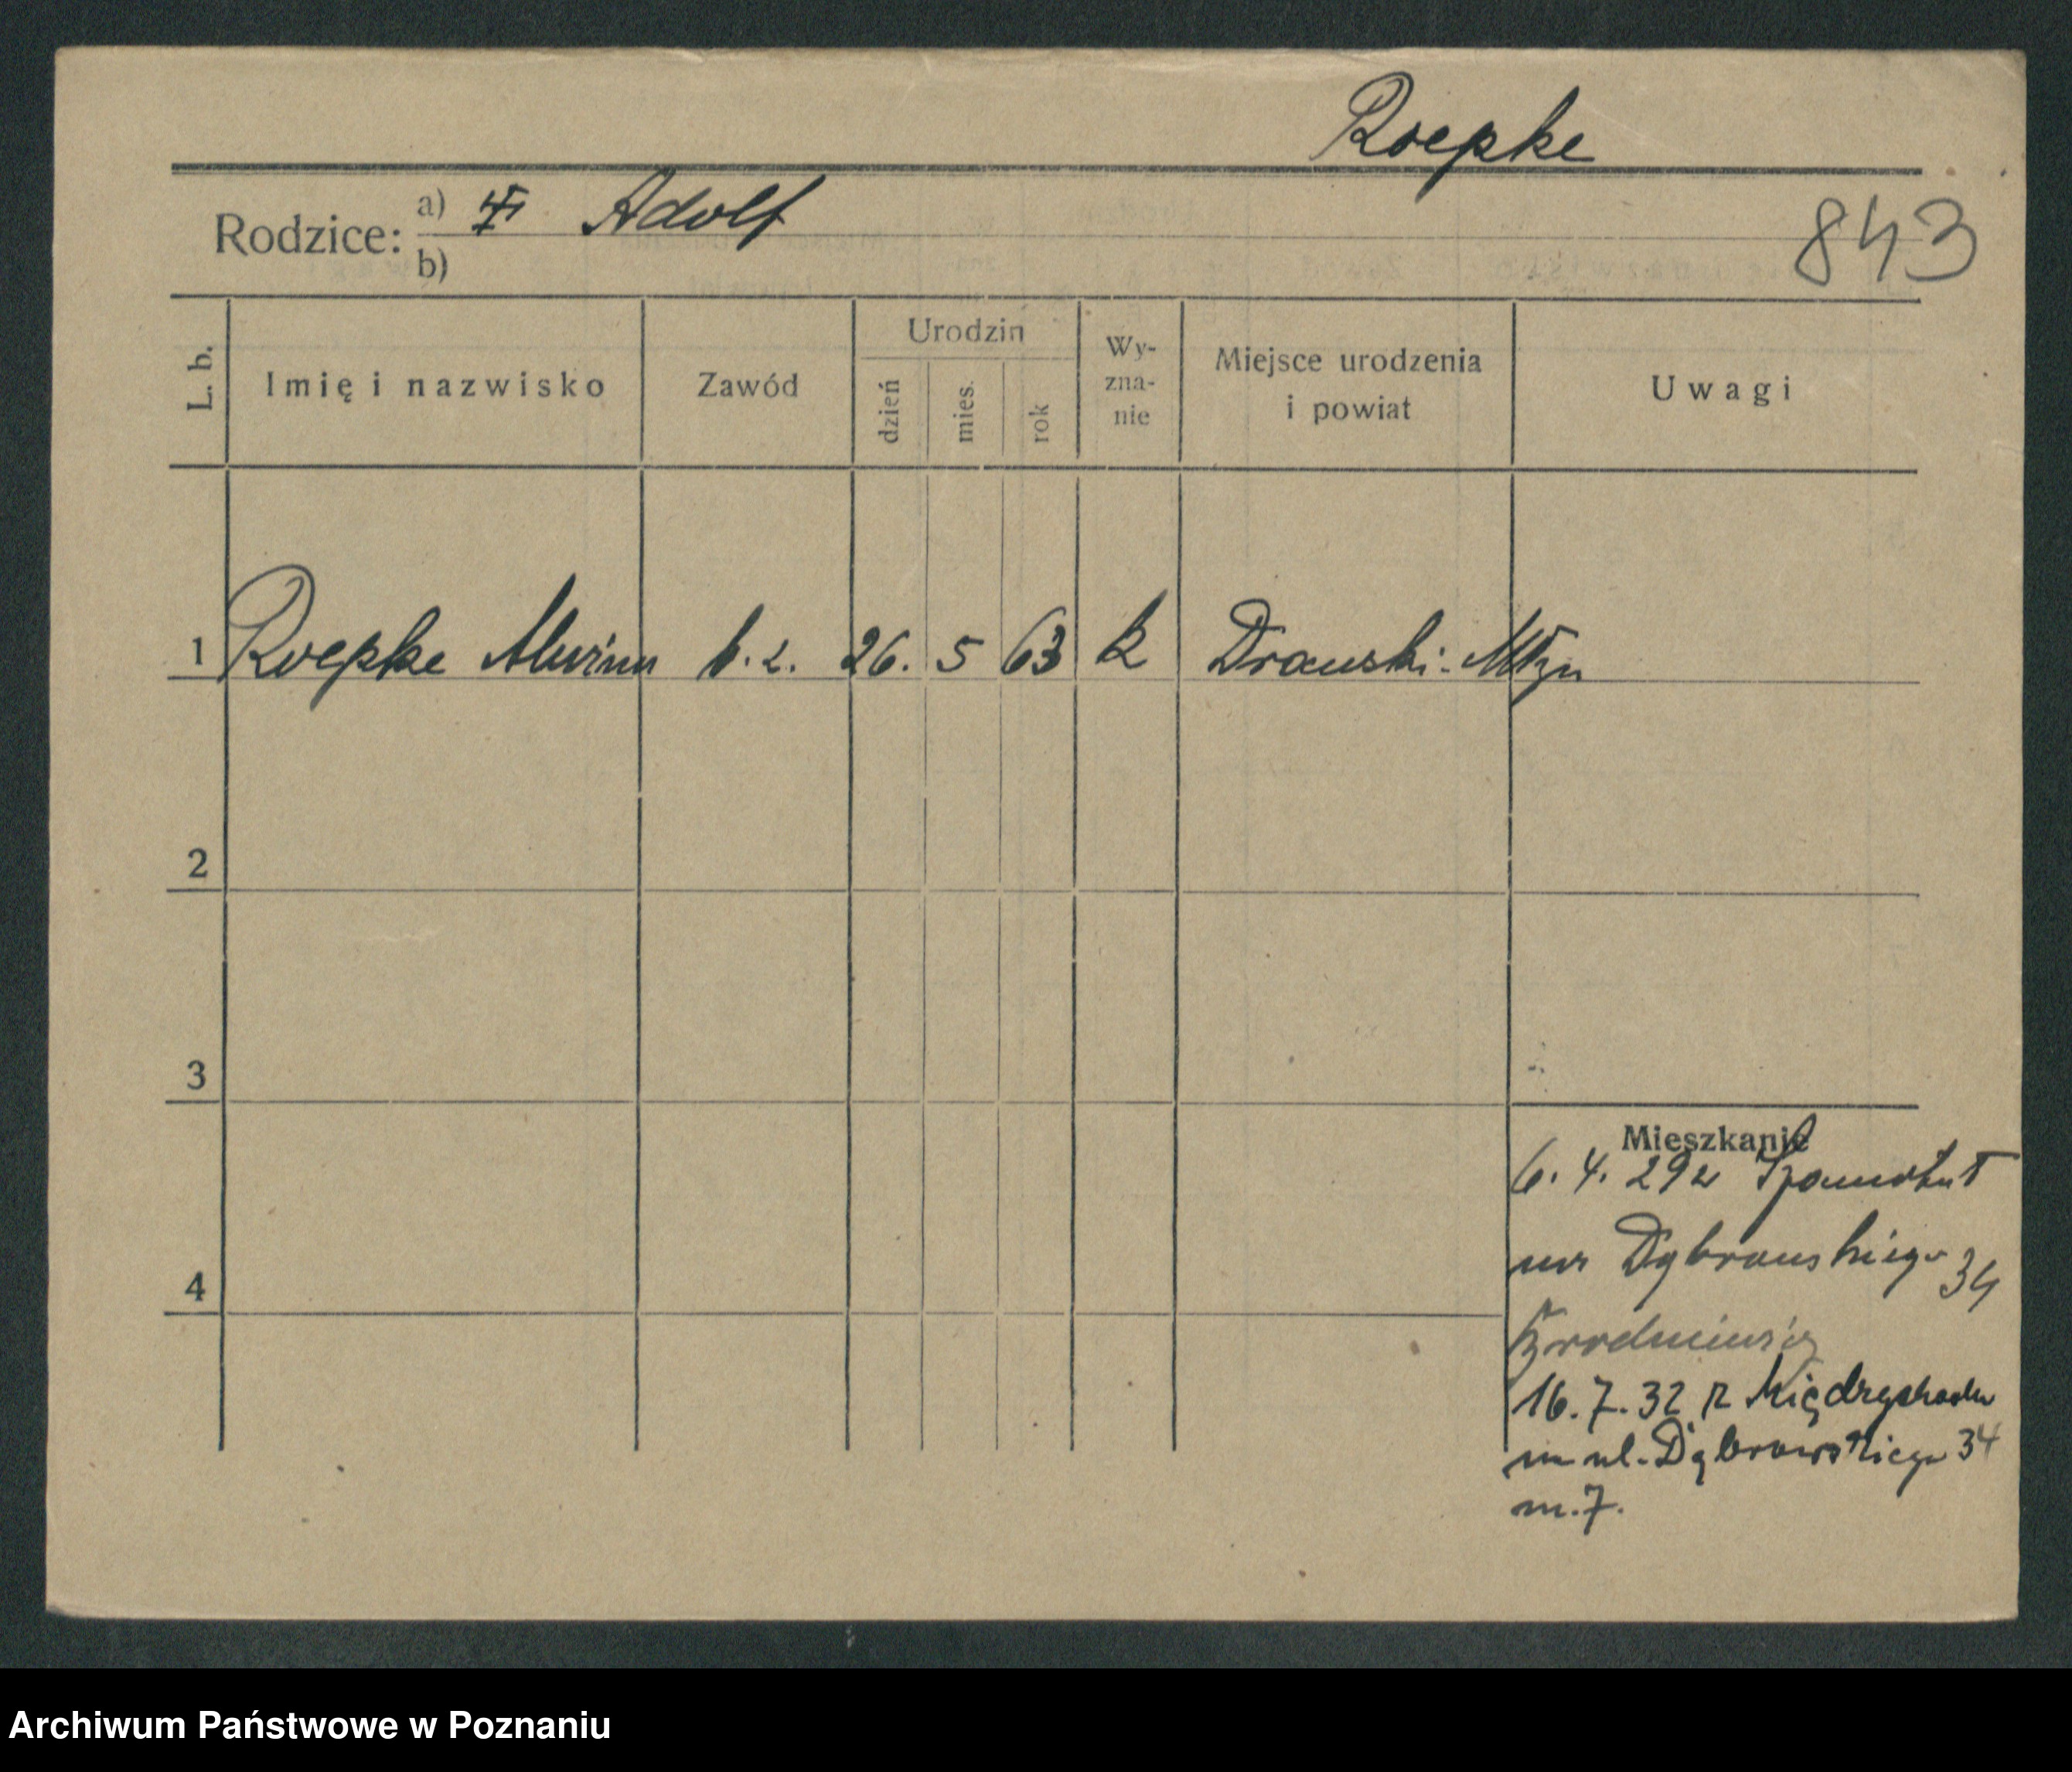 Roepke
843
Rodzice: a) Adolf
b)
L. b. Imię i nazwisko Zawód Urodzin dzień mies. rok Wy-zna-nie Miejsce urodzenia i powiat Uwagi
1 Roepke Alwina b. z. 26. 5 63 k Drawski-Młyn
2
3
Mieszkanie
6. 4. 29 z Szamotuł
4
na Dąbrowskiego 34
16. 7. 32 z Międzychodu
na ul. Dąbrowskiego 34
m. 7.
Archiwum Państwowe w Poznaniu